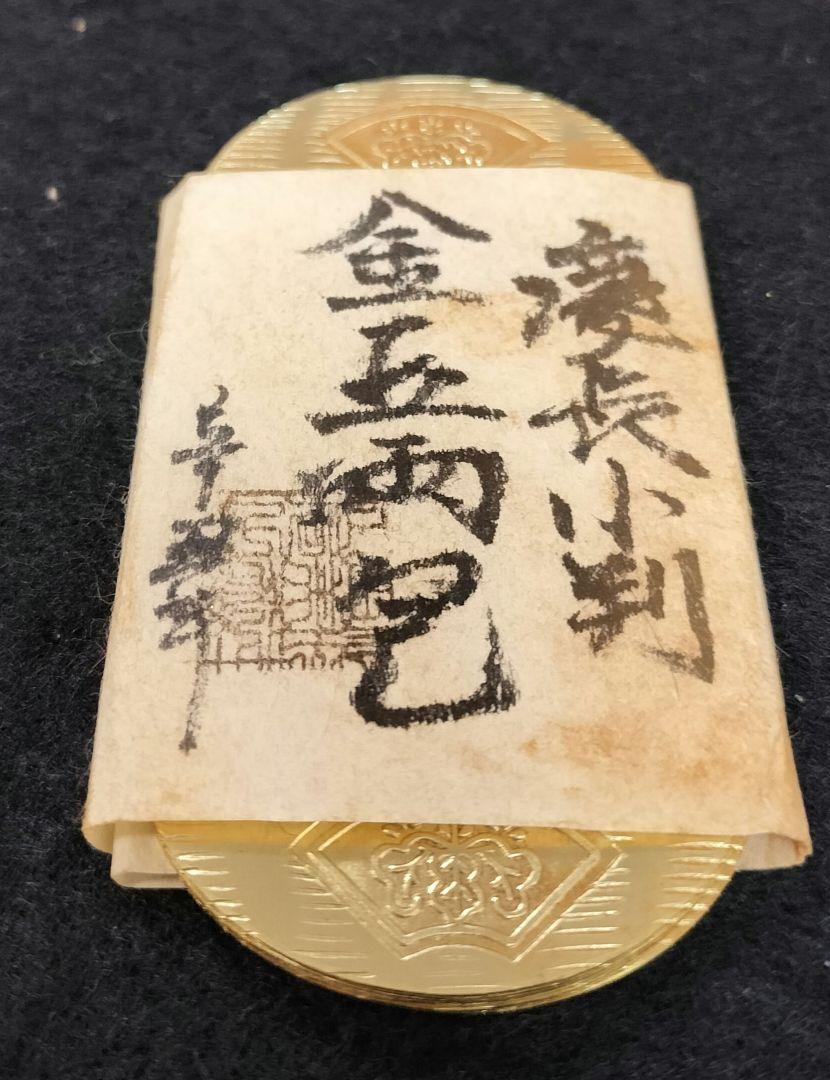 慶長小判
金五両包